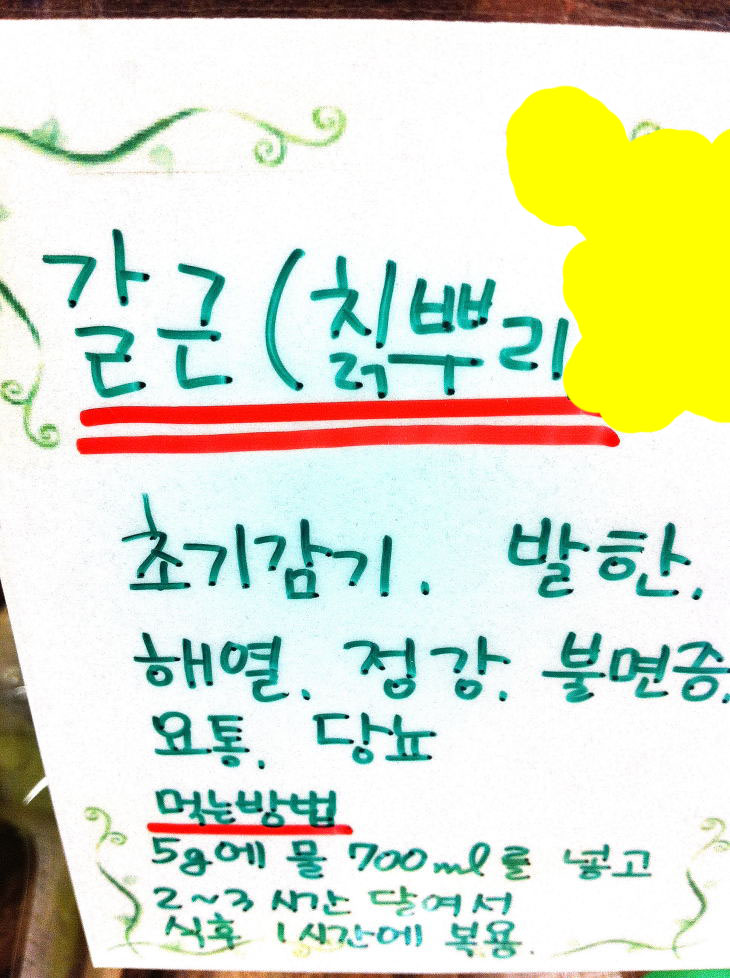 갈근(칡뿌리
초기감기. 발한.
해열. 정강. 불면증.
요통. 당뇨
먹는방법
5g에 물 700ml를 넣고
2~3 시간 달여서
식후 1시간에 복용.